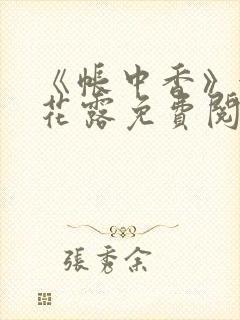 《帐中香》
花露免費閱
張秀余